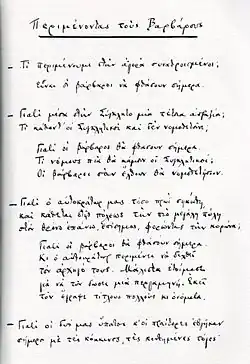 Περιμένοντας τοὺς Βαρβάρους
— Τί περιμένουμε στὴν ἀγορὰ συναθροισμένοι;
Εἶναι οἱ βάρβαροι νὰ φθάσουν σήμερα.
— Γιατί μέσα στὴν Σύγκλητο μιὰ τέτοια ἀπραξία;
Τί κάθοντ' οἱ Συγκλητικοὶ καὶ δὲν νομοθετοῦνε;
Γιατὶ οἱ βάρβαροι θὰ φθάσουν σήμερα.
Τί νόμους πιὰ θὰ κάμουν οἱ Συγκλητικοί;
Οἱ βάρβαροι σὰν ἔλθουν θὰ νομοθετήσουν.
— Γιατί ὁ αὐτοκράτωρ μας τόσο πρωῒ σηκώθη,
καὶ κάθεται στῆς πόλεως τὴν πιὸ μεγάλη πύλη
στὸν θρόνο ἐπάνω, ἐπίσημος, φορώντας τὴν κορώνα;
Γιατὶ οἱ βάρβαροι θὰ φθάσουν σήμερα.
Κι ὁ αὐτοκράτωρ περιμένει νὰ δεχθεῖ
τὸν ἀρχηγό τους. Μάλιστα ἑτοίμασε
γιὰ νὰ τὸν δώσει μιὰ περγαμηνή. Ἐκεῖ
τὸν ἔγραψε τίτλους πολλοὺς κι ὀνόματα.
— Γιατί οἱ δυό μας ὕπατοι κ' οἱ πραίτορες ἐβγῆκαν
σήμερα μὲ τὲς κόκκινες, τὲς κεντημένες τόγες·